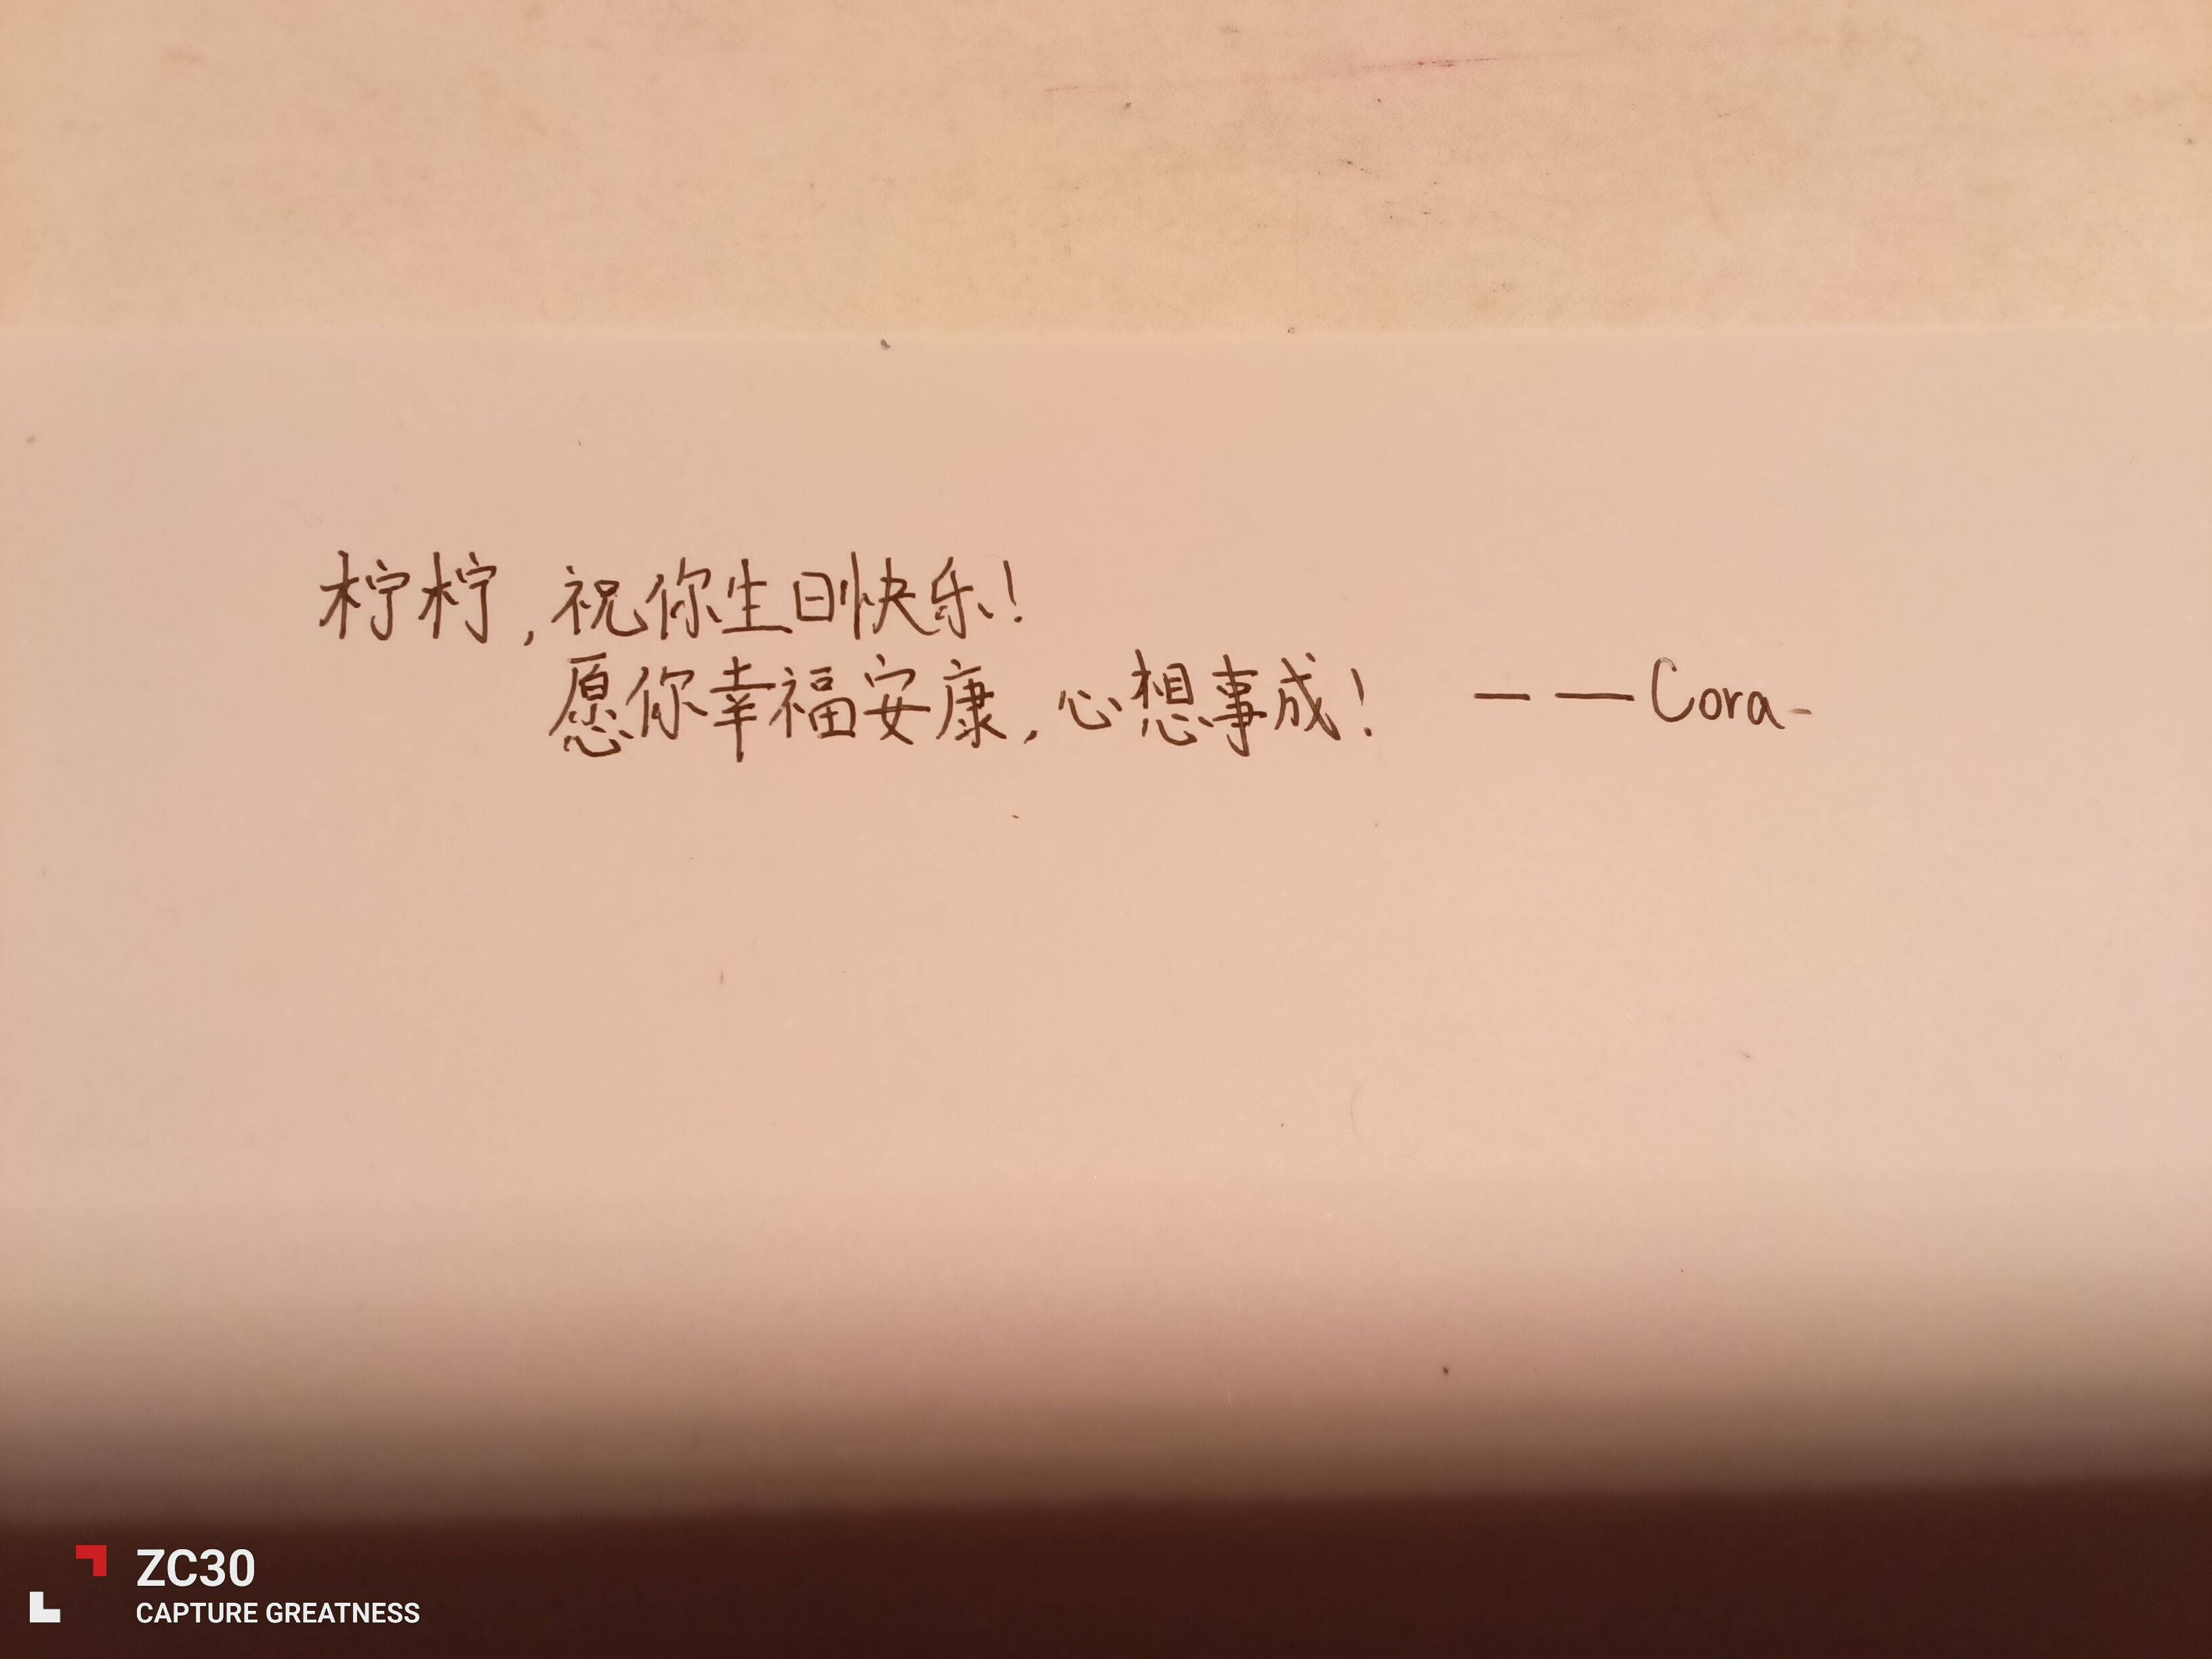 柠柠,祝你生日快乐!
愿你幸福安康,心想事成! ——Cora
ZC30
CAPTURE GREATNESS